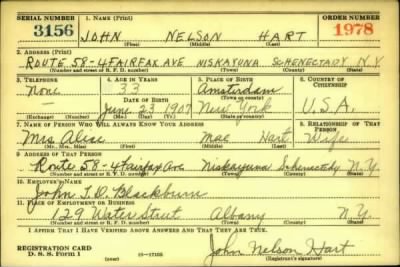 SERIAL NUMBER 1. NAME (Print) ORDER NUMBER
3156 JOHN NELSON HART 1978
(First) (Middle) (Last)
2. ADDRESS (Print)
ROUTE 58-4 FAIRFAX AVE NISKAYUNA SCHENECTADY N.Y.
(Number and street or R. F. D. number) (Town) (County) (State)
3. TELEPHONE 4. AGE IN YEARS 5. PLACE OF BIRTH 6. COUNTRY OF CITIZENSHIP
None 33 Amsterdam
DATE OF BIRTH (Town or county)
June 23 1907 New York U.S.A.
(Exchange) (Number) (Mo.) (Day) (Yr.) (State or country)
7. NAME OF PERSON WHO WILL ALWAYS KNOW YOUR ADDRESS 8. RELATIONSHIP OF THAT PERSON
Mrs Alice Mae Hart Wife
(Mr., Mrs., Miss) (First) (Middle) (Last)
9. ADDRESS OF THAT PERSON
Route 58-4 Fairfax Ave Niskayuna Schenectady N.Y.
(Number and street or R. F. D. number) (Town) (County) (State)
10. EMPLOYER'S NAME
John T. D. Blackburn
11. PLACE OF EMPLOYMENT OR BUSINESS
129 Water Street Albany N.Y.
(Number and street or R. F. D. number) (Town) (County) (State)
I AFFIRM THAT I HAVE VERIFIED ABOVE ANSWERS AND THAT THEY ARE TRUE.
REGISTRATION CARD John Nelson Hart
D. S. S. Form 1 (Registrant's signature)